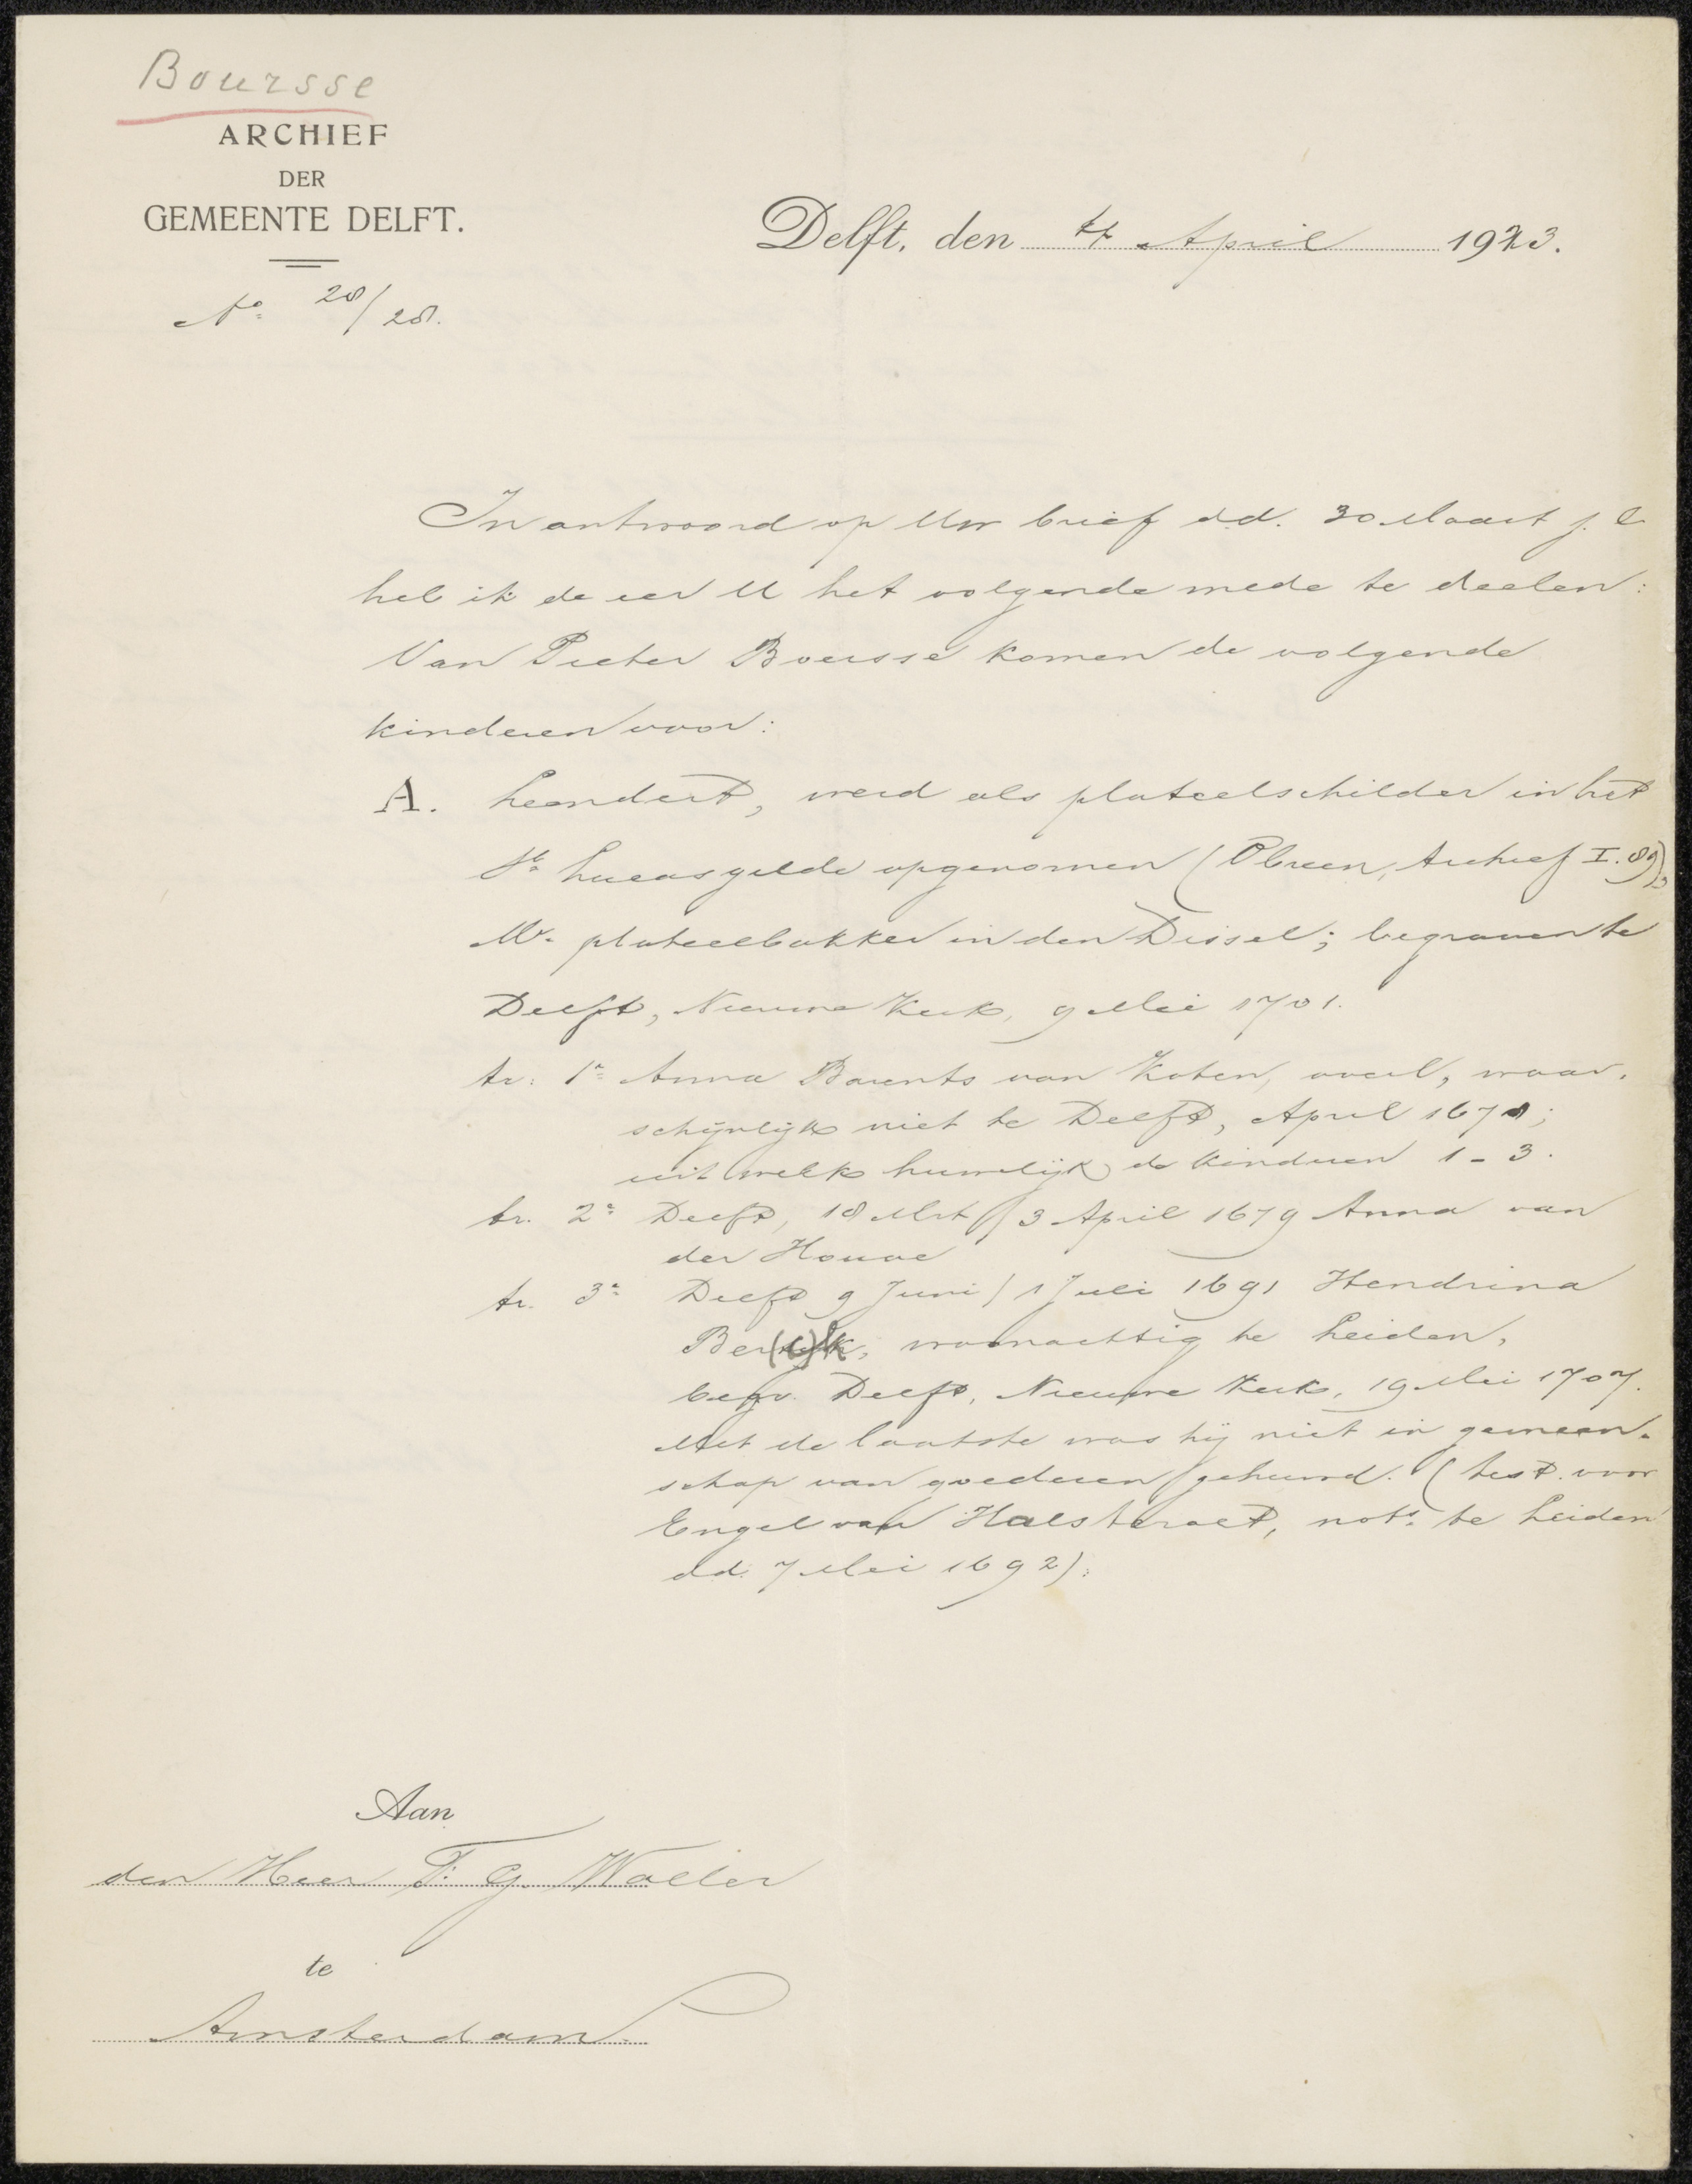 Boursse
ARCHIEF
DER
GEMEENTE DELFT.
No. 28/28.
Delft, den 4 April 1923.
In antwoord op Uw brief d.d. 30 Maart j.l.
heb ik de eer U het volgende mede te deelen:
Van Pieter Boursse komen de volgende
kinderen voor:
A. Leendert, werd als plateelschilder in het
St. Lucasgilde opgenomen (Obreen, Archief I. 89),
Mr. plateelbakker in den Dissel; begraven te
Delft, Nieuwe Kerk, 9 Mei 1701.
tr. 1e Anna Barents van Koten, overl., waar-
schijnlijk niet te Delft, April 1678;
uit welk huwelijk de kinderen 1-3.
tr. 2e Delft, 18 Mrt / 3 April 1679 Anna van
der Houve
tr. 3e Delft 9 Juni / 1 Juli 1691 Hendrina
woonachtig te Leiden,
begr. Delft, Nieuwe Kerk, 19 Mei 1707.
Met de laatste was hij niet in gemeen-
schap van goederen gehuwd. (test. voor
Engel van Halsteraet, nots. te Leiden
d.d. 7 Mei 1692).
Aan
den Heer F. G. Waller
te
Amsterdam.